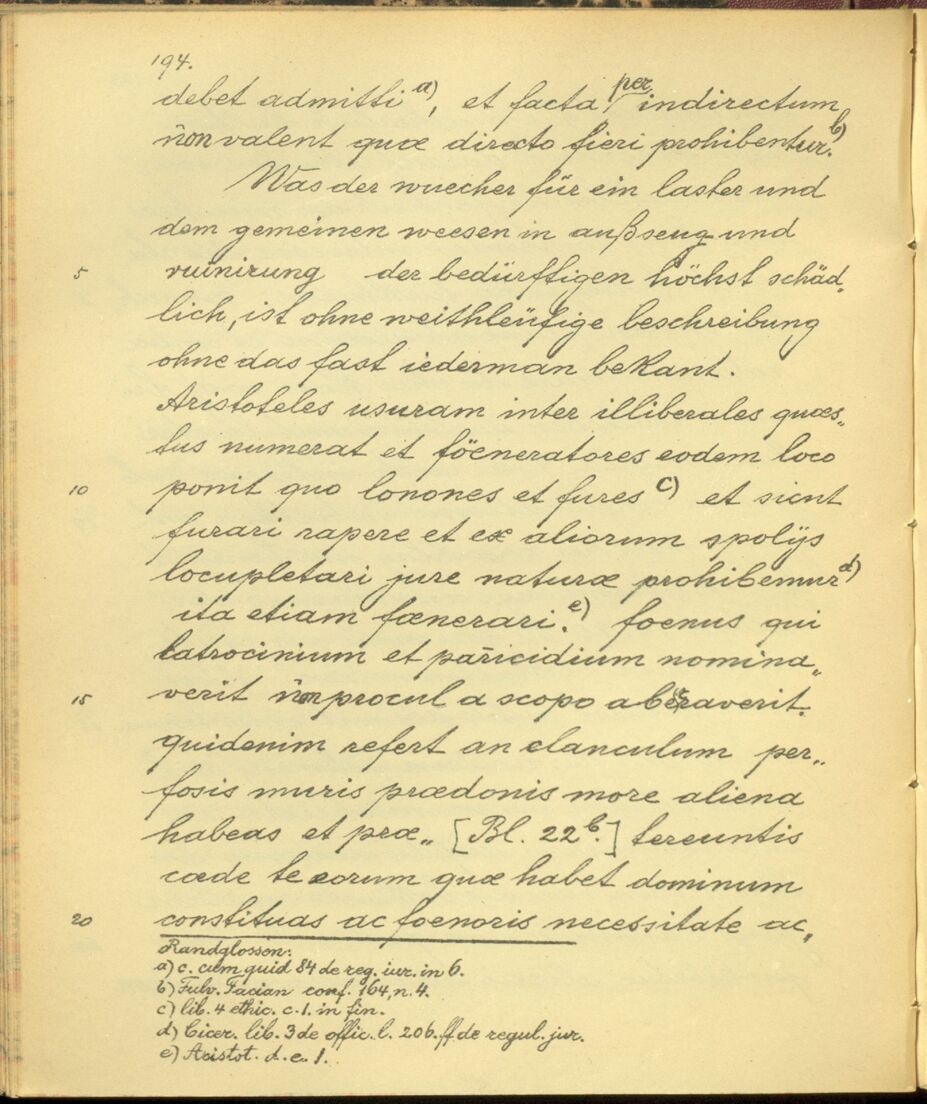 194.
debet admitti a), et facta per indirectum
non valent quæ directo fieri prohibentur. b)
Was der wuecher für ein laster und
dem gemeinen weesen in außseug und
5 ruinirung der bedürfftigen höchst schäd„
lich, ist ohne weithleüfige beschreibung
ohne das fast iederman bekant.
Aristoteles usuram inter illiberales quæs„
tus numerat et föeneratores eodem loco
10 ponit quo lonones et fures c) et sicut
furari rapere et ex aliorum spolijs
locupletari jure naturæ prohibemur d)
ita etiam fœnerari. e) foenus qui
latrocinium et parricidium nomina„
15 verit non procul a scopo aberraverit.
quidenim refert an clanculum per„
fosis muris prædonis more aliena
habeas et præ„ [Bl. 22 b.] tereuntis
cæde te eorum quæ habet dominum
20 constituas ac foenoris necessitate ac„
Randglossen:
a) c. cum quid 84 de reg. iur. in 6.
b) Fulv. Pacian conf. 164, n. 4.
c) lib. 4 ethic. c. 1. in fin.
d) Cicer. lib. 3 de offic. l. 206. ff de regul. jur.
e) Aristot. d. c. 1.